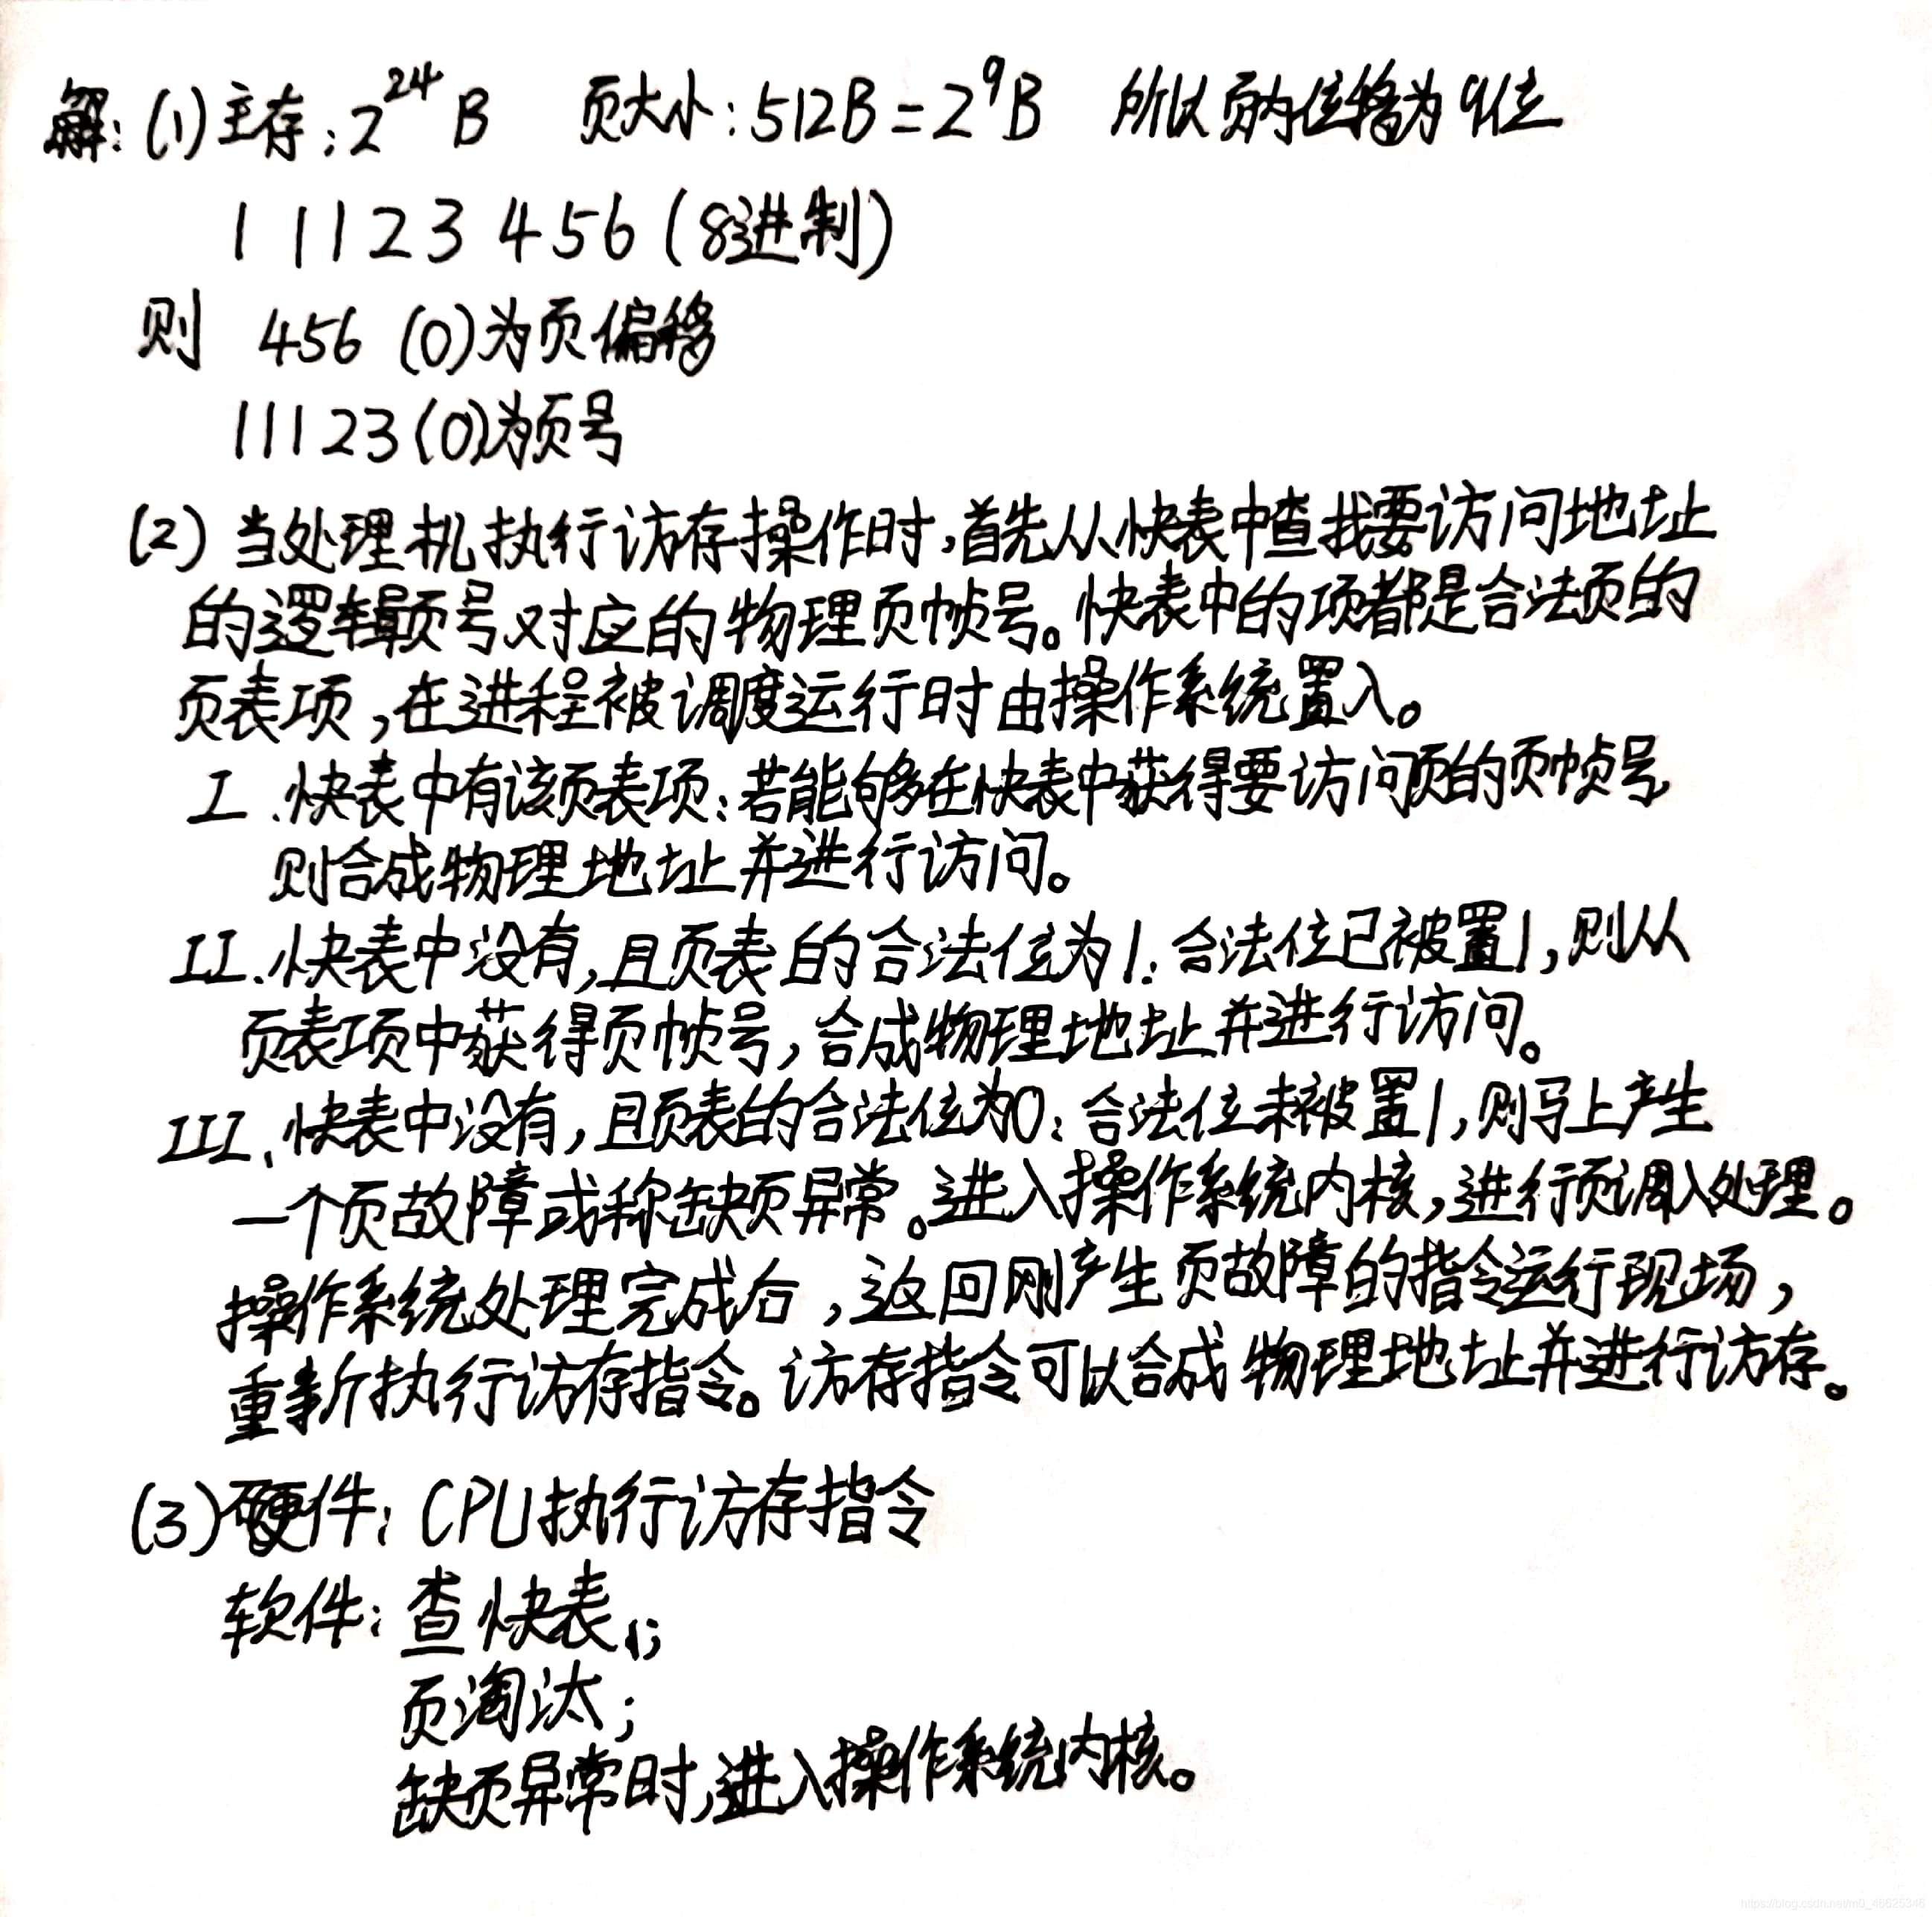 解:(1)主存:2^24 B 页大小:512B=2^9B 所以页内位移为9位
1 1 1 2 3 4 5 6 (8进制)
则 456 (O)为页偏移
11123(O)为页号
(2) 当处理机执行访存操作时,首先从快表中查找要访问地址
的逻辑页号对应的物理页帧号。快表中的项都是合法页的
页表项,在进程被调度运行时由操作系统置入。
I、快表中有该页表项:若能够在快表中获得要访问页的页帧号,
则合成物理地址并进行访问。
II、快表中没有,且页表的合法位为1:合法位已被置1,则从
页表项中获得页帧号,合成物理地址并进行访问。
III、快表中没有,且页表的合法位为0:合法位未被置1,则马上产生
一个页故障或称缺页异常。进入操作系统内核,进行页调入处理。
操作系统处理完成后,返回刚产生页故障的指令运行现场,
重新执行访存指令。访存指令可以合成物理地址并进行访存。
(3)硬件:CPU执行访存指令
软件:查快表;
页淘汰;
缺页异常时,进入操作系统内核。
https://blog.csdn.net/m0_46625346